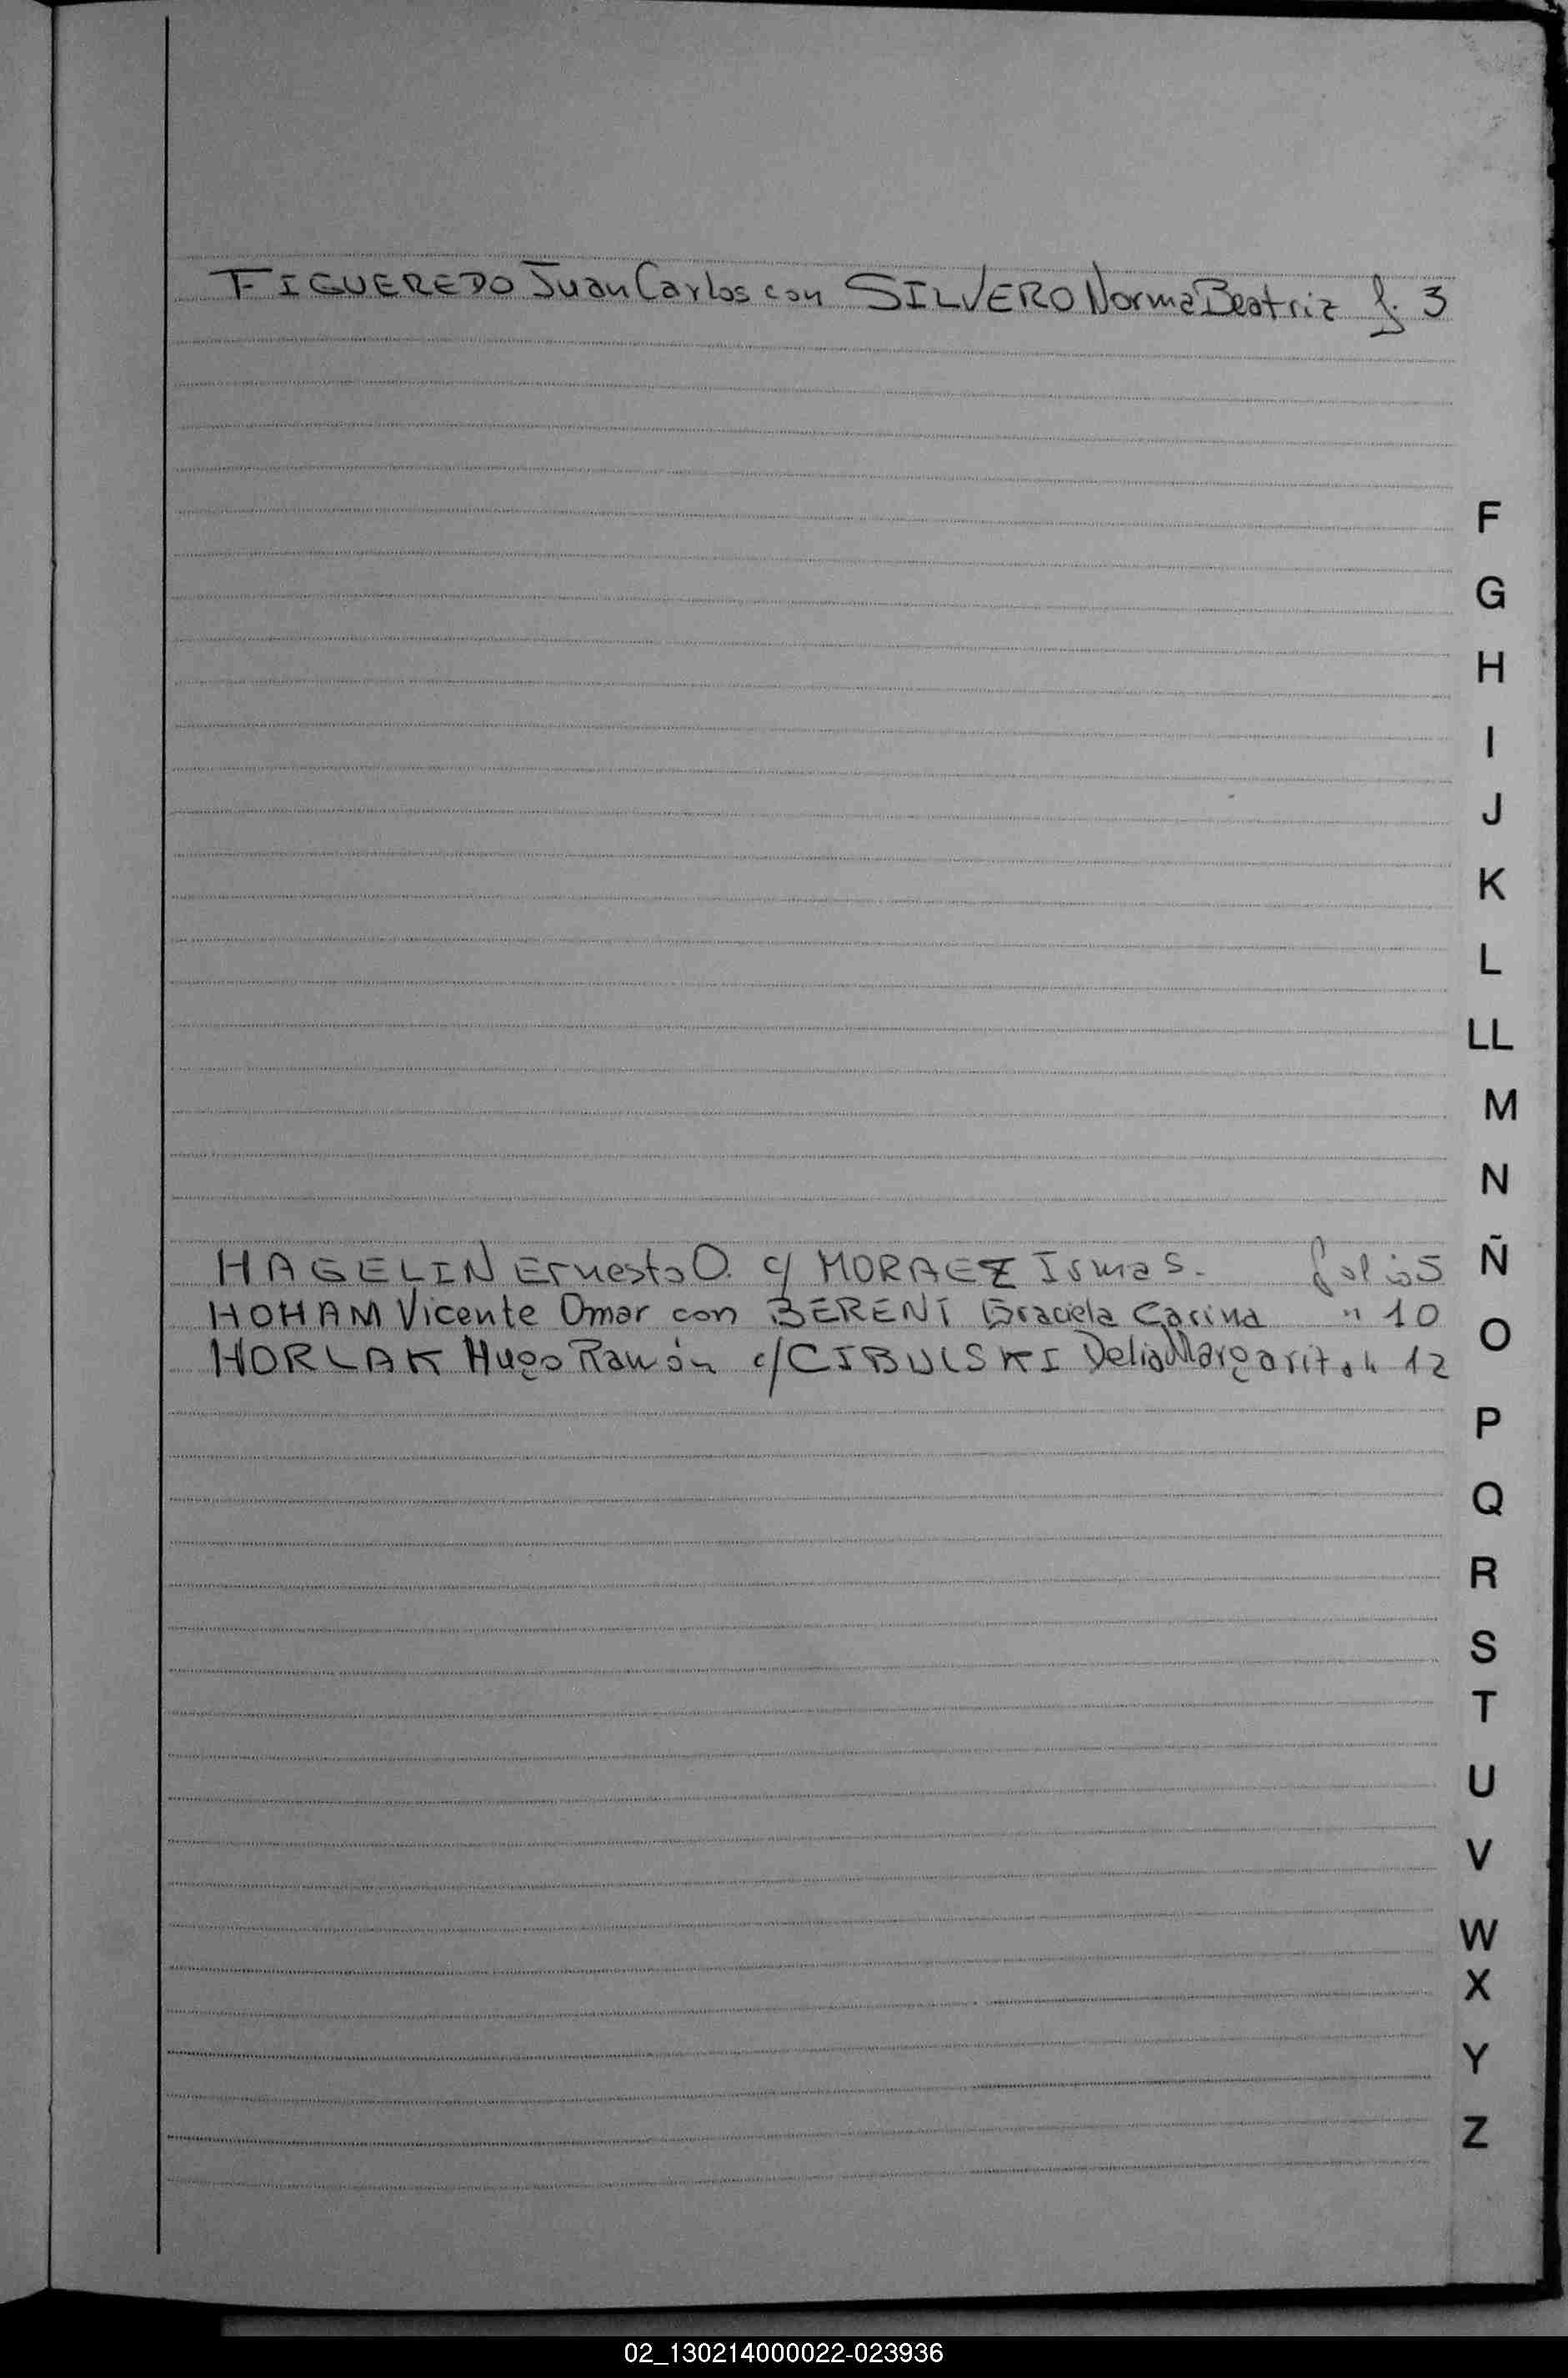 FIGUEREDO Juan Carlos con SILVERO Norma Beatriz f. 3
F
G
H
I
J
K
L
LL
M
N
HAGELIN Ernesto O. c/ MORAEZ Isma S. folio 5
Ñ
HOHAM Vicente Omar con BERENT Graciela Carina " 10
O
HORLAK Hugo Ramón c/ CIBULSKI Delia Margarita " 12
P
Q
R
S
T
U
V
W
X
Y
Z
02_130214000022-023936